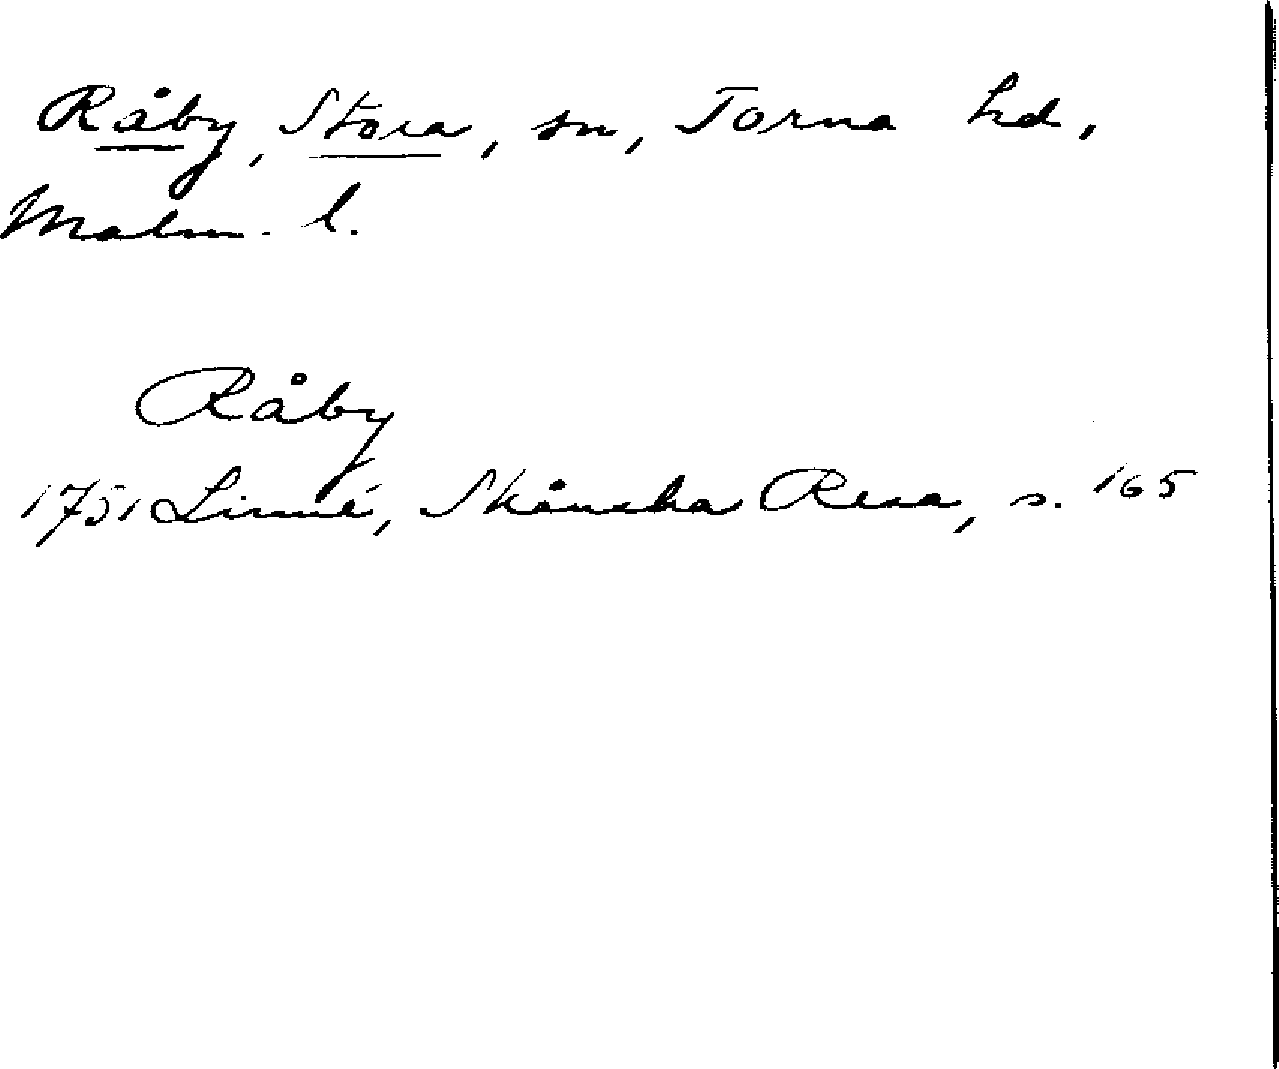 Råby, Stora, sn, Torna hd,
Malm. l.
Råby
1751 Linné, Skånska Resa, s. 165